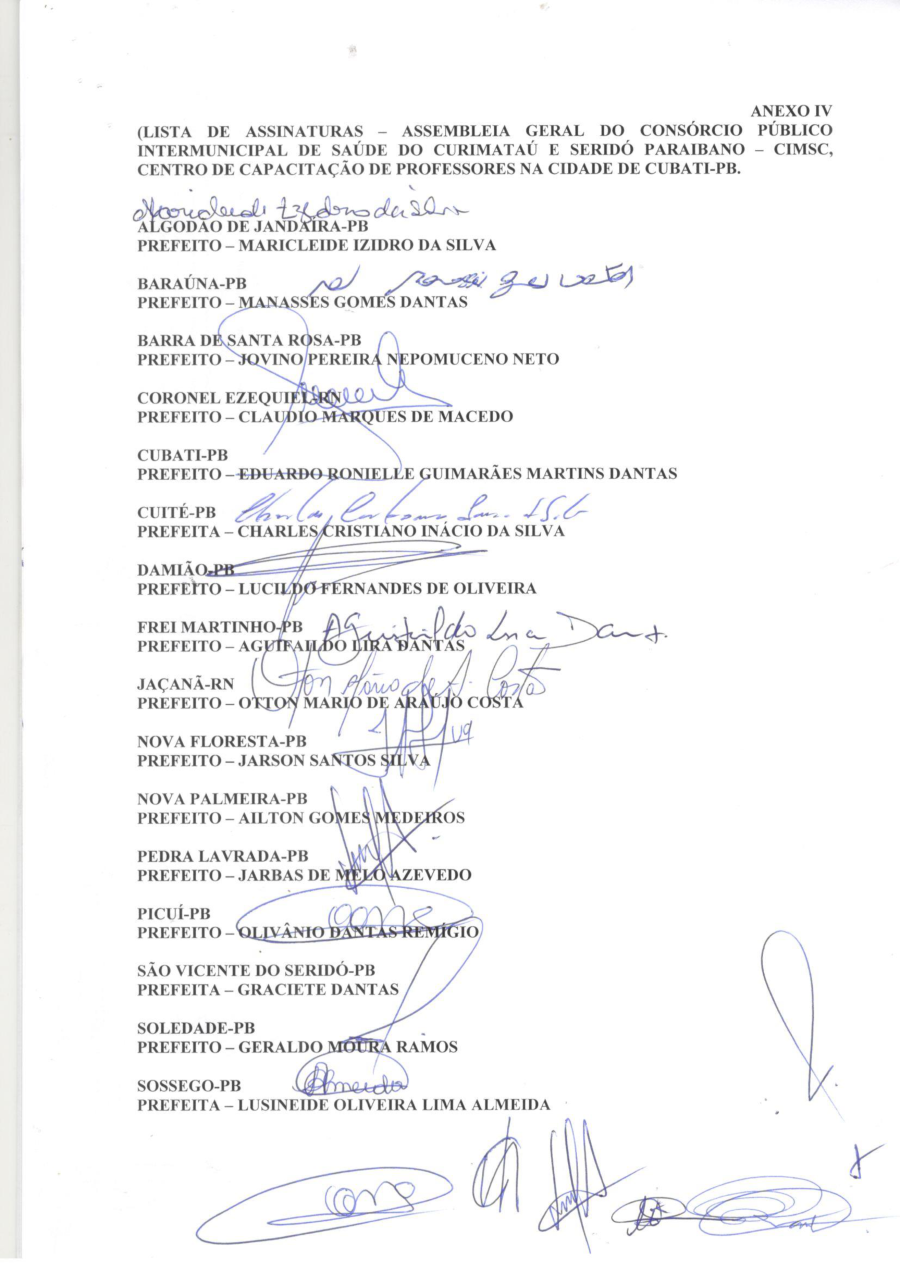 ANEXO IV
(LISTA DE ASSINATURAS – ASSEMBLEIA GERAL DO CONSÓRCIO PÚBLICO
INTERMUNICIPAL DE SAÚDE DO CURIMATAÚ E SERIDÓ PARAIBANO – CIMSC,
CENTRO DE CAPACITAÇÃO DE PROFESSORES NA CIDADE DE CUBATI-PB.
ALGODÃO DE JANDAÍRA-PB
PREFEITO – MARICLEIDE IZIDRO DA SILVA
BARAÚNA-PB
PREFEITO – MANASSES GOMES DANTAS
BARRA DE SANTA ROSA-PB
PREFEITO – JOVINO PEREIRA NEPOMUCENO NETO
CORONEL EZEQUIEL-RN
PREFEITO – CLAUDIO MARQUES DE MACEDO
CUBATI-PB
PREFEITO – EDUARDO RONIELLE GUIMARÃES MARTINS DANTAS
CUITÉ-PB
PREFEITA – CHARLES CRISTIANO INÁCIO DA SILVA
DAMIÃO-PB
PREFEITO – LUCILDO FERNANDES DE OLIVEIRA
FREI MARTINHO-PB Aguifaildo Lira Dant.
PREFEITO – AGUIFAILDO LIRA DANTAS
JAÇANÃ-RN
PREFEITO – OTTON MARIO DE ARAÚJO COSTA
NOVA FLORESTA-PB
PREFEITO – JARSON SANTOS SILVA
NOVA PALMEIRA-PB
PREFEITO – AILTON GOMES MEDEIROS
PEDRA LAVRADA-PB
PREFEITO – JARBAS DE MELO AZEVEDO
PICUÍ-PB
PREFEITO – OLIVÂNIO DANTAS REMÍGIO
SÃO VICENTE DO SERIDÓ-PB
PREFEITA – GRACIETE DANTAS
SOLEDADE-PB
PREFEITO – GERALDO MOURA RAMOS
SOSSEGO-PB Almeida
PREFEITA – LUSINEIDE OLIVEIRA LIMA ALMEIDA